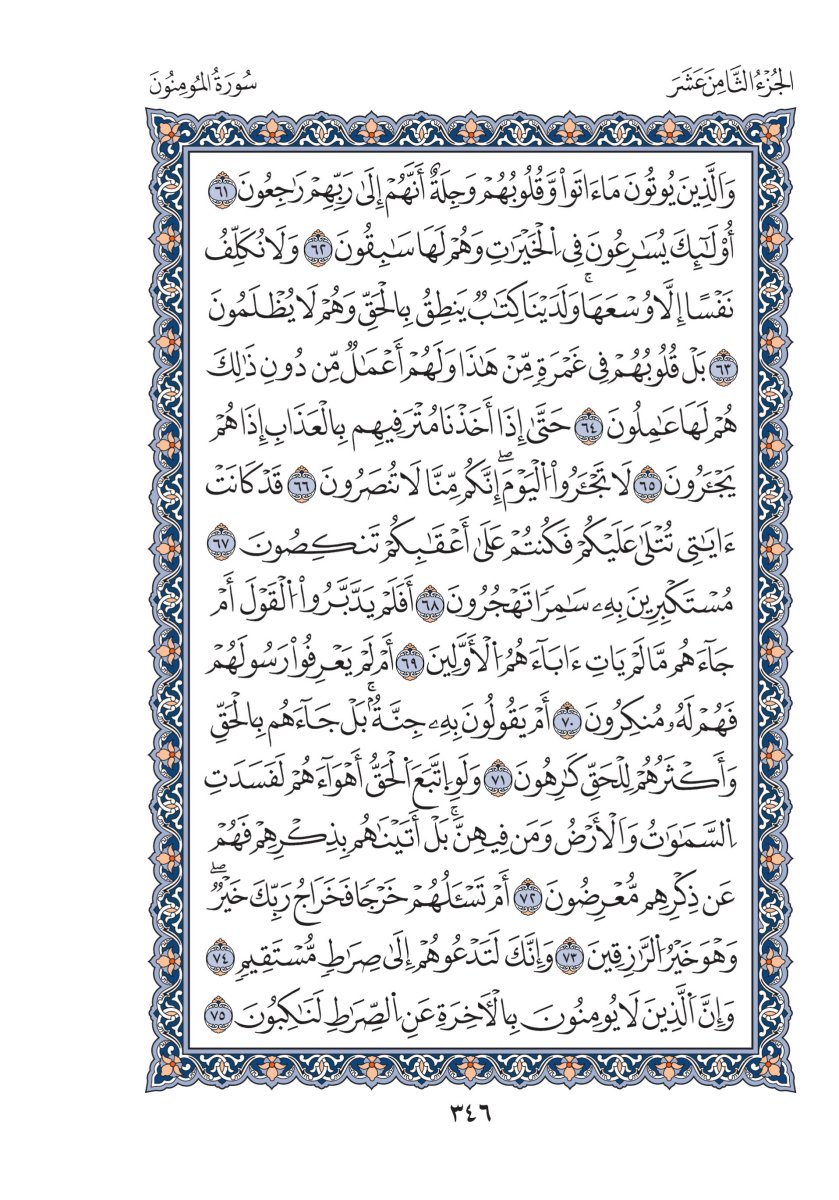 الجُزْءُ الثَّامِنَ عَشَرَ
سُورَةُ المُومِنُونَ
وَالَّذِينَ يُوتُونَ مَا ءَاتَواْ وَّقُلُوبُهُمْ وَجِلَةٌ أَنَّهُمْ إِلَىٰ رَبِّهِمْ رَٰجِعُونَ ٦١
أُوْلَٰٓئِكَ يُسَٰرِعُونَ فِى اِ۬لْخَيْرَٰتِ وَهُمْ لَهَا سَٰبِقُونَ ٦٢ وَلَا نُكَلِّفُ
نَفْسًا إِلَّا وُسْعَهَاۚ وَلَدَيْنَا كِتَٰبٌ يَنطِقُ بِالْحَقِّ وَهُمْ لَا يُظْلَمُونَ
٦٣ بَلْ قُلُوبُهُمْ فِى غَمْرَةٍ مِّنْ هَٰذَا وَلَهُمْ أَعْمَٰلٌ مِّن دُونِ ذَٰلِكَ
هُمْ لَهَا عَٰمِلُونَ ٦٤ حَتَّىٰ إِذَا أَخَذْنَا مُتْرَفِيهِم بِالْعَذَابِ إِذَا هُمْ
يَجْـَٔرُونَ ٦٥ لَا تَجْـَٔرُواْ اُ۬لْيَوْمَۖ إِنَّكُم مِّنَّا لَا تُنصَرُونَ ٦٦ قَدْ كَانَتْ
ءَايَٰتِى تُتْلَىٰ عَلَيْكُمْ فَكُنتُمْ عَلَىٰ أَعْقَٰبِكُمْ تَنكِصُونَ ٦٧
مُسْتَكْبِرِينَ بِهِۦ سَٰمِرًا تَهْجُرُونَ ٦٨ أَفَلَمْ يَدَّبَّرُواْ اُ۬لْقَوْلَ أَمْ
جَآءَهُم مَّا لَمْ يَاتِ ءَابَآءَهُمُ اُ۬لْأَوَّلِينَ ٦٩ أَمْ لَمْ يَعْرِفُواْ رَسُولَهُمْ
فَهُمْ لَهُۥ مُنكِرُونَ ٧٠ أَمْ يَقُولُونَ بِهِۦ جِنَّةٌۢۚ بَلْ جَآءَهُم بِالْحَقِّ
وَأَكْثَرُهُمْ لِلْحَقِّ كَٰرِهُونَ ٧١ وَلَوِ اِ۪تَّبَعَ اَ۬لْحَقُّ أَهْوَآءَهُمْ لَفَسَدَتِ
اِ۬لسَّمَٰوَٰتُ وَالْأَرْضُ وَمَن فِيهِنَّۚ بَلْ أَتَيْنَٰهُم بِذِكْرِهِمْ فَهُمْ
عَن ذِكْرِهِم مُّعْرِضُونَ ٧٢ أَمْ تَسْـَٔلُهُمْ خَرْجًا فَخَرَاجُ رَبِّكَ خَيْرٌۖ
وَهْوَ خَيْرُ اُ۬لرَّٰزِقِينَ ٧٣ وَإِنَّكَ لَتَدْعُوهُمْ إِلَىٰ صِرَٰطٍ مُّسْتَقِيمٍ ٧٤
وَإِنَّ اَ۬لَّذِينَ لَا يُومِنُونَ بِالْأٓخِرَةِ عَنِ اِ۬لصِّرَٰطِ لَنَٰكِبُونَ ٧٥
٣٤٦